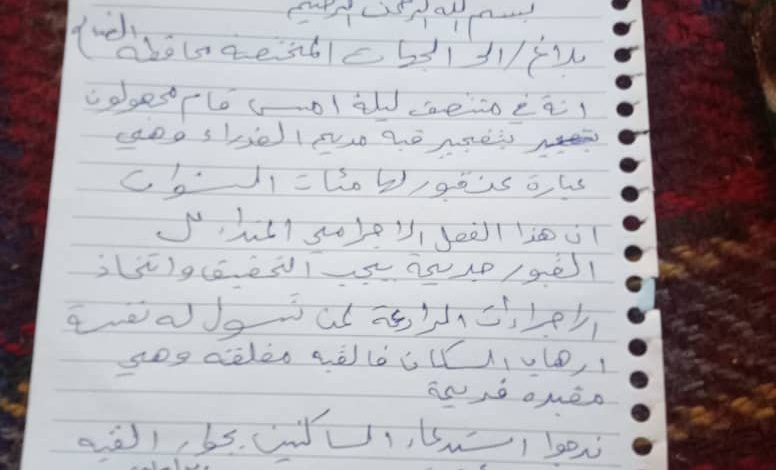 بسم الله الرحمن الرحيم
بلاغ/الى الجهات المختصة محافظة الضالع
انة في منتصف ليلة امس قام مجهولون
بتفجير قبة مريم العذراء وهي
عبارة عن قبور لها مئات السنوات
ان هذا الفعل الاجرامي
القبور جريمة يجب التحقيق واتخاذ
الاجراءات الرادعة لمن تسول له نفسة
ارهاب السكان فالقبه مغلقه وهي
مقبره قديمة
نرجوا استدعاء الساكنين بجوار القبه